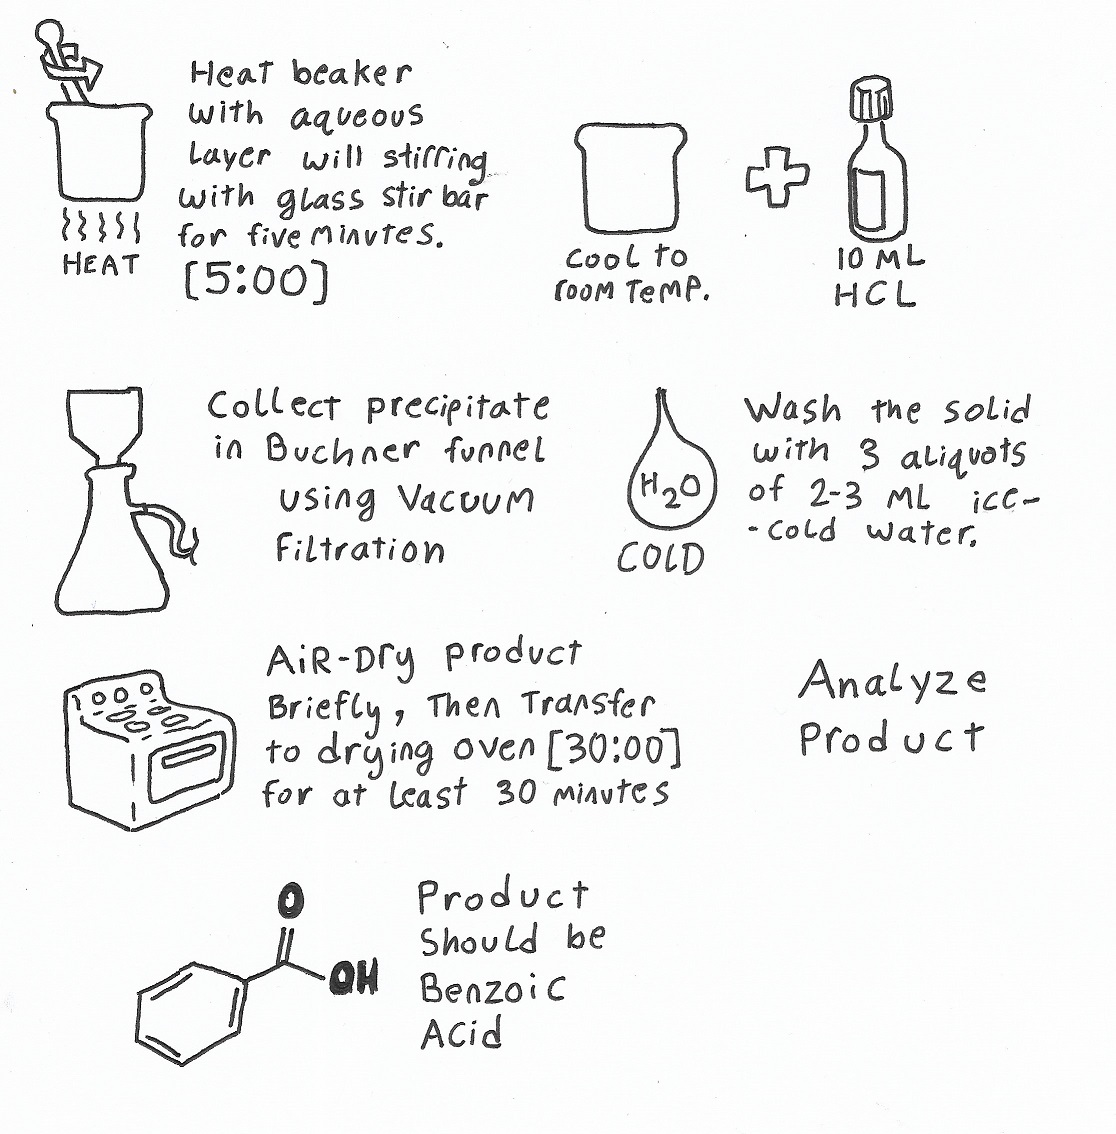 Heat beaker
with aqueous
Layer will stirring
with glass stir bar
for five minutes.
[5:00]
HEAT
Cool to
room Temp.
10 ML
HCL
Collect precipitate
in Buchner funnel
using Vacuum
Filtration
H2O
COLD
Wash the solid
with 3 aliquots
of 2-3 ML ice-
-cold water.
AiR-Dry product
Briefly, Then Transfer
to drying oven [30:00]
for at least 30 minutes
Analyze
Product
O
OH
Product
Should be
Benzoic
Acid